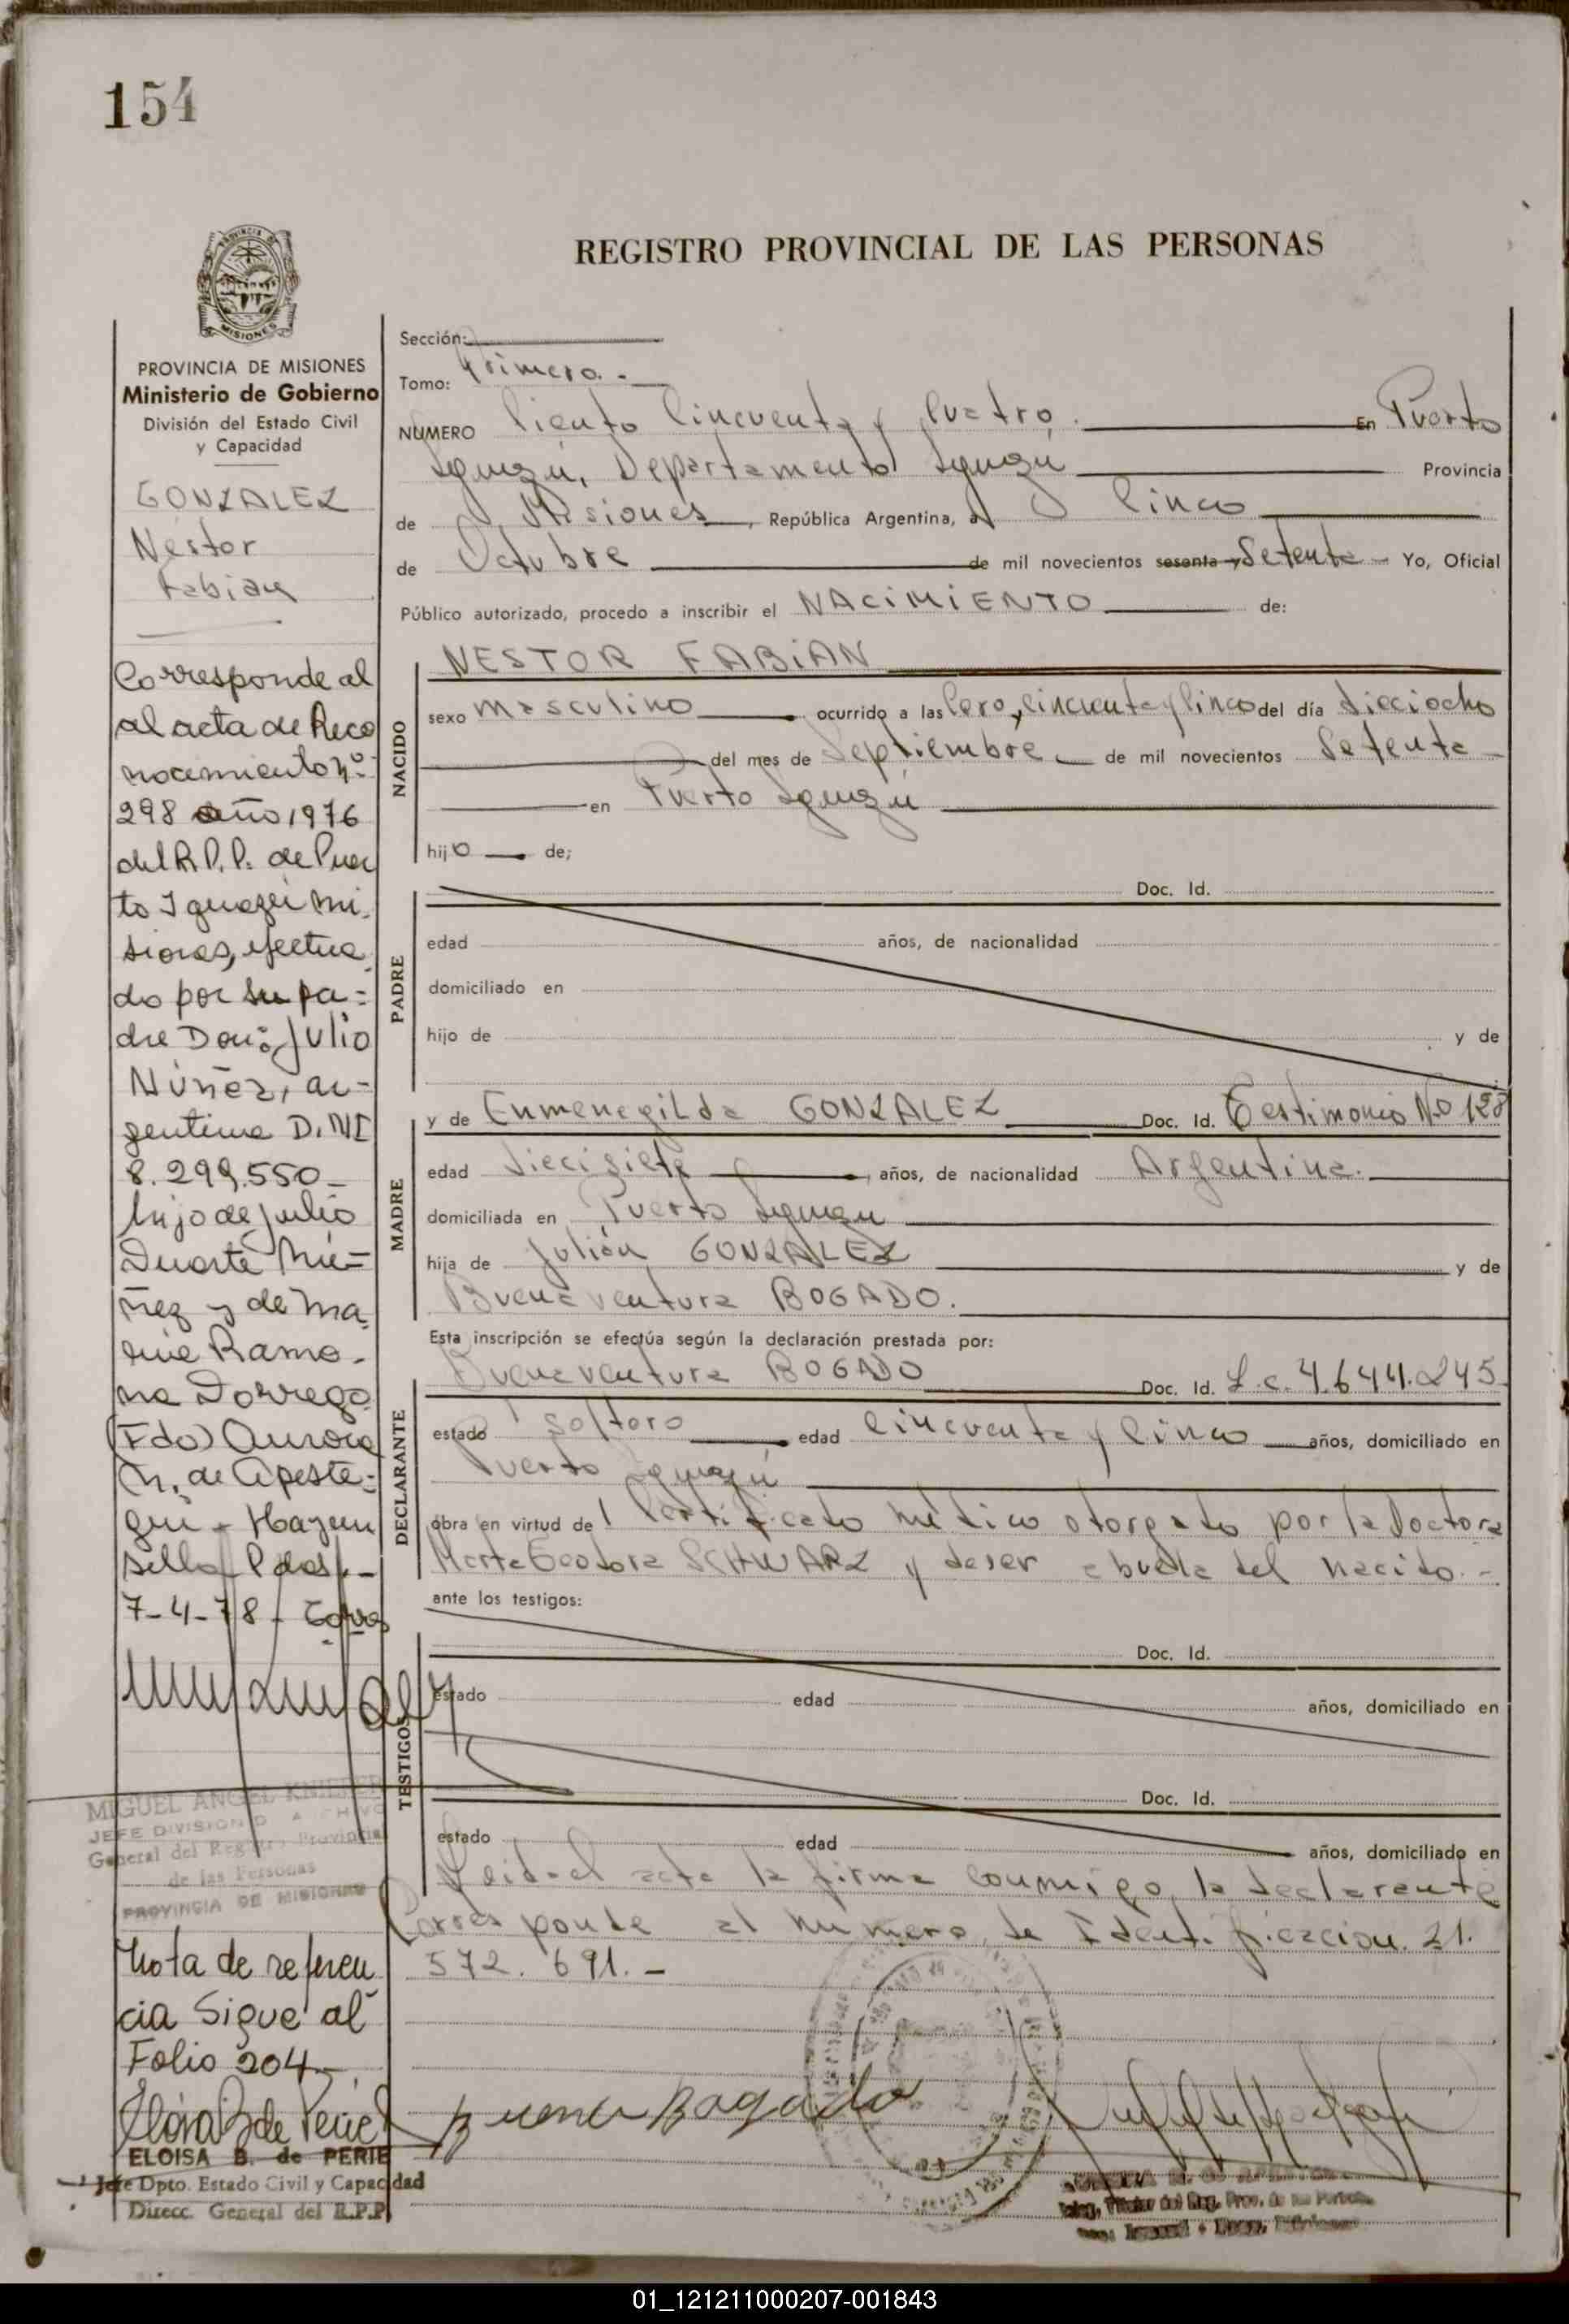 154
REGISTRO PROVINCIAL DE LAS PERSONAS
PROVINCIA DE
MISIONES
PROVINCIA DE MISIONES
Ministerio de Gobierno
División del Estado Civil
y Capacidad
GONZALEZ
Néstor
Fabian
Corresponde al
al acta de Reco
nocimiento nº
298 año 1976
del R.P.P. de Puer
to Iguazú Mi_
siones, efectua_
do por su pa=
dre Don: Julio
Núñez, ar=
gentino D.NI
8.299.550_
hijo de Julio
Duarte Nú=
ñez y de Ma_
ria Ramo_
na Dorrego
(Fdo) Aurora
de Apeste=
gui - Hay un
sello Pdas._
7-4-78
MIGUEL ANGEL
JEFE DIVISION
General del Registro Provincial
de las Personas
PROVINCIA DE MISIONES
Nota de referen
cia Sigue al
Folio 204_
ELOISA B. de PERIE
Jefe Dpto. Estado Civil y Capacidad
Direcc. General del R.P.P.
Sección:
Tomo: Primero.-
NUMERO Ciento Cincuenta y Cuatro. En Puerto
Iguazú, Departamento Iguazú Provincia
de Misiones, República Argentina, a Cinco
de Octubre de mil novecientos sesenta y Setenta - Yo, Oficial
Público autorizado, procedo a inscribir el NACIMIENTO de:
NACIDO
NESTOR FABIAN
sexo masculino ocurrido a las Cero, cincuenta y Cinco del día dieciocho
del mes de Septiembre de mil novecientos Setenta
en Puerto Iguazú
hijo de;
PADRE
Doc. Id.
edad años, de nacionalidad
domiciliado en
hijo de y de
MADRE
y de Enmenegilda GONZALEZ Doc. Id. Testimonio No 128
edad diecisiete años, de nacionalidad Argentina.
domiciliada en Puerto Iguazu
hija de Julián GONZALEZ y de
Buenaventura BOGADO.
Esta inscripción se efectúa según la declaración prestada por:
DECLARANTE
Buenaventura BOGADO Doc. Id. L.c. 4.644.245
estado soltero edad Cincuenta y Cinco años, domiciliado en
Puerto Iguazú
obra en virtud de Certificado médico otorgado por la Doctora
Marta Teodora SCHWARZ y de ser abuela del nacido.-
ante los testigos:
TESTIGOS
Doc. Id.
estado edad años, domiciliado en
Doc. Id.
estado edad años, domiciliado en
Leida el acta la firma conmigo la declarante
Corresponde al número de Identificacion. 21.
572. 691.-
Buena Bogado
01_121211000207-001843